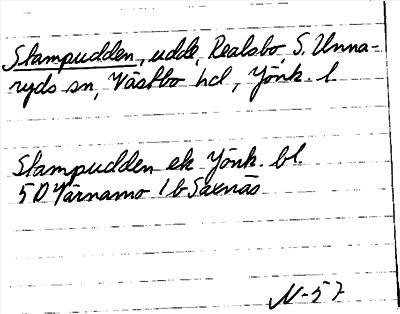 Stampudden, udde, Realsbo, S. Unna-
ryds sn, Västbo hd, Jönk. l.
Stampudden ek Jönk. bl.
5D Värnamo 1b Saxnäs
N-57